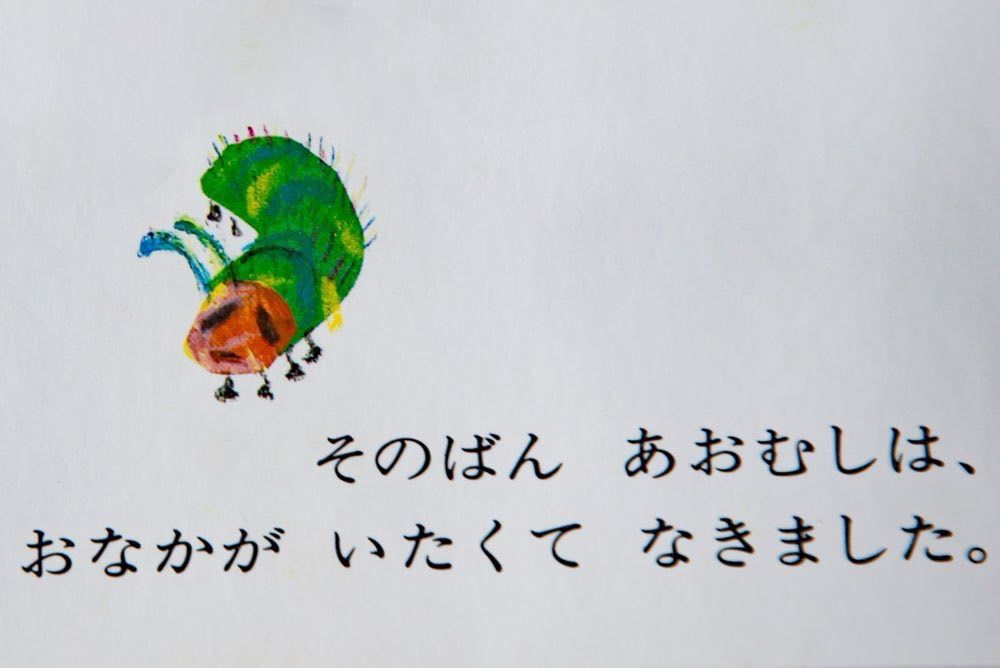 そのばん あおむしは、
おなかが いたくて なきました。